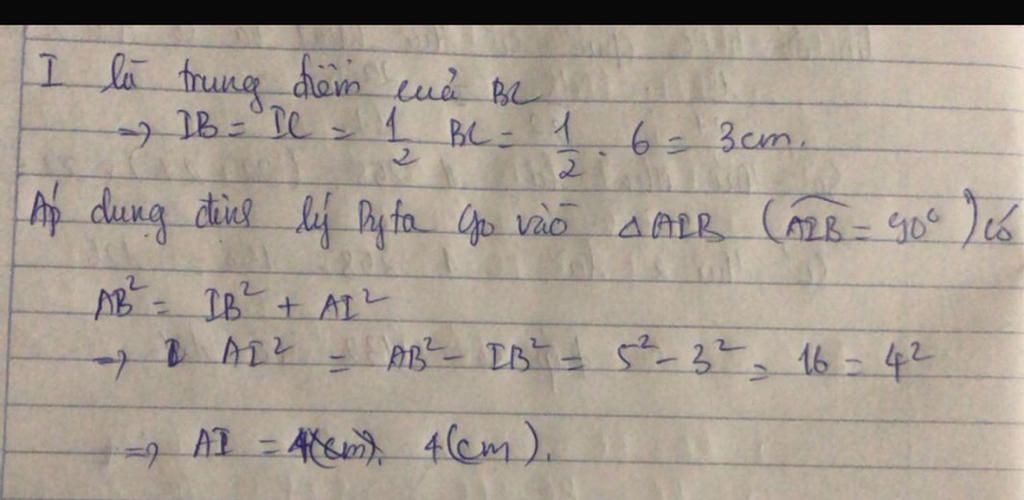 I là trung điểm cuả BC
=> IB = IC = 1/2 BC = 1/2 . 6 = 3cm.
Áp dung định lý Pyta go vào △AIB (\widehat{AIB} = 90°) có
AB² = IB² + AI²
=> AI² = AB² - IB² = 5² - 3² = 16 = 4²
=> AI = 4(cm).